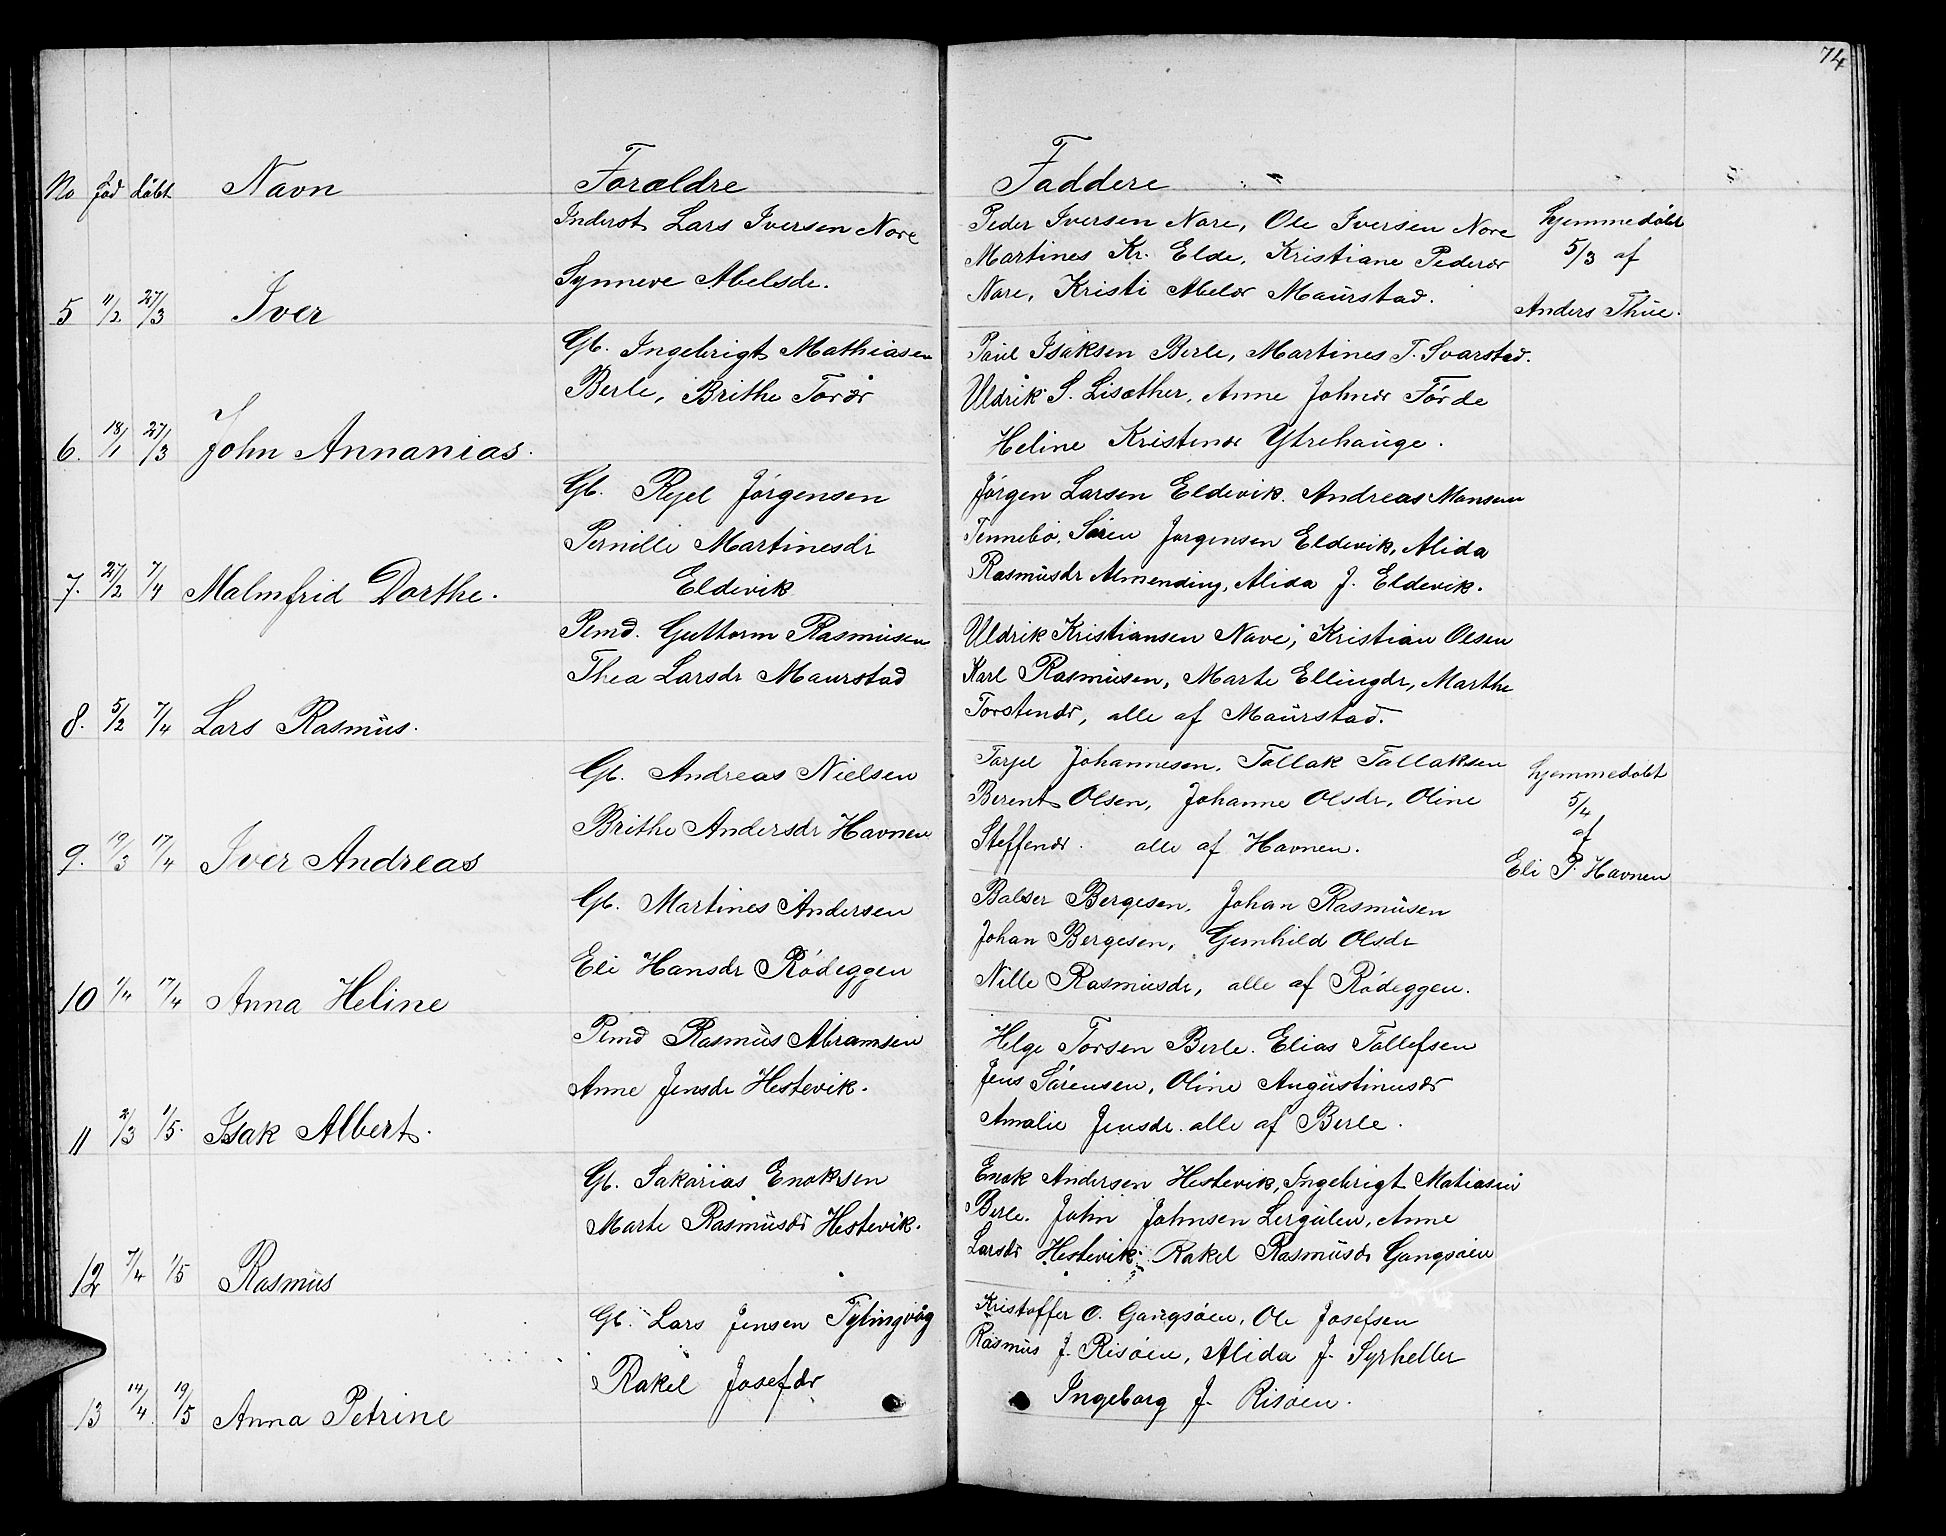 74
No född döbt Navn Forældre Faddere
Inderst Lars Iversen Nore
Synneve Abelsdr.
5 11/2 27/3 Iver
Peder Iversen Nore, Ole Iversen Nore
Martines Kr. Elde, Kristiane Pedersdr
Nore, Kristi Abelsdr Maurstad.
hjemmedöbt
5/3 af
Anders Thue.
Gb. Ingebrigt Mathiasen
Berle, Brithe Torsdr
6. 18/1 27/3 John Annanias.
Paul Isaksen Berle, Martines T. Svarstad.
Uldrik S. Lisæther, Anne Johnsdr Förde
Heline Kristensdr Ytrehauge.
Gb. Rejel Jörgensen
Pernille Martinesdr
Eldevik
7. 27/2 7/4 Malmfrid Dorthe.
Jörgen Larsen Eldevik. Andreas Monsen
Tennebö, Sören Jörgensen Eldevik, Alida
Rasmusdr Almending, Alida J. Eldevik.
Pmd. Guttorm Rasmusen
Thea Larsdr Maurstad
8. 5/2 7/4 Lars Rasmus.
Uldrik Kristiansen Nave, Kristian Olsen
Karl Rasmusen, Marte Ellingdr, Marthe
Torstensdr, alle af Maurstad.
Gb. Andreas Nielsen
Brithe Andersdr Havnen
9. 19/3 17/4 Iver Andreas
Torjel Johannesen, Tollak Tollaksen
Berent Olsen, Johanne Olsdr, Oline
Steffensdr. alle af Havnen.
hjemmedöbt
5/4
af
Eli P. Havnen
Gb. Martines Andersen
Eli Hansdr Rödeggen
10 1/4 17/4 Anna Heline
Balser Bergesen, Johan Rasmusen
Johan Bergesen, Gunhild Olsdr
Nille Rasmusdr, alle af Rödeggen.
Pmd Rasmus Abramsen
Anne Jensdr Hestevik.
11 2/3 1/5. Isak Albert.
Helge Torsen Berle. Elias Tollefsen
Jens Sörensen, Oline Augustinusdr
Amalie Jensdr. alle af Berle.
Gb. Sakarias Enoksen
Marte Rasmusdr Hestevik.
12 7/4 1/5 Rasmus
Enok Andersen Hestevik, Ingebrigt Matiasen
Berle. John Johnsen Lergulen, Anne
Larsdr Hestevik. Rakel Rasmusdr Gangsöen
Gb. Lars Jensen Tytingvåg
Rakel Josefsdr
13 14/4 19/5 Anna Petrine
Kristoffer O. Gangsöen, Ole Josefsen
Rasmus J. Risöen, Alida J. Syrheller
Ingeborg J. Risöen.